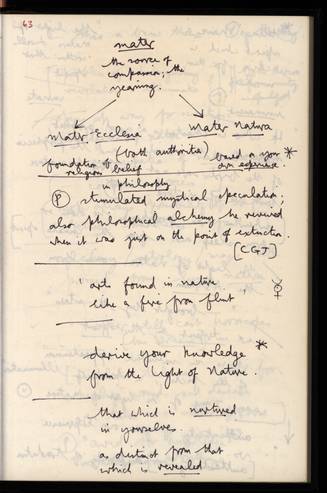 63
mater
the source of
compassion; the
yearning.
Mater Ecclesia
Mater Natura
(both authorita)
foundation of
religion belief
based on your *
own experience.
in philosophy
(P) stimulated mystical speculation;
also philosophical alchemy he revived
when it was just on the point of extinction.
[CGJ]
'arts found in nature
like a fire from flint' ☿
derive your knowledge *
from the light of nature.
that which is nurtured
in yourselves.
as distinct from that
which is revealed